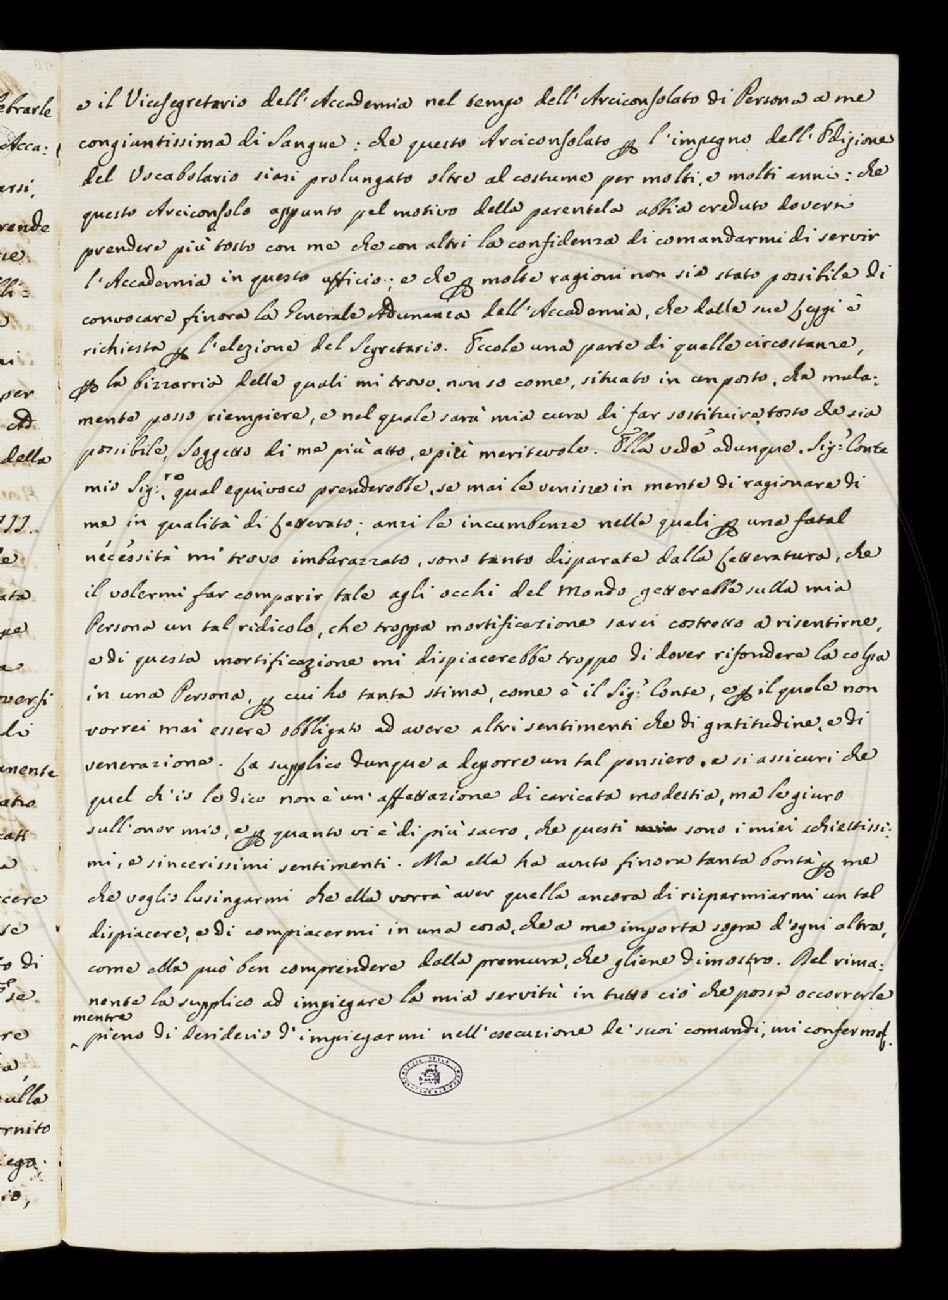 e il Vicesegretario dell'Accademia nel tempo dell'Arciconsolato di Persona a me
congiuntissima di Sangue : che questo Arciconsolato p l'impegno dell'Edizione
del Vocabolario siasi prolungato oltre al costume per molti, e molti anni : che
questo Arciconsolo appunto pel motivo della parentela abbia creduto dovere
prendere più tosto con me che con altri la confidenza di comandarmi di servir
l'Accademia in questo ufficio; e che p molte ragioni non sia stato possibile di
convocare finora la Generale Adunanza dell'Accademia, che dalle sue Leggi è
richiesta p l'elezione del Segretario. Eccole una parte di quelle circostanze,
p la bizzarria delle quali mi trovo, non so come, situato in un posto, che mala:
mente posso riempiere, e nel quale sarà mia cura di far sostituire tosto che sia
possibile, Soggetto di me più atto, e più meritevole. Ella vede adunque, Sig.r Conte
mio Sig.re, qual equivoco prenderebbe, se mai le venisse in mente di ragionare di
me in qualità di Letterato; anzi le incumbenze nelle quali p una fatal
necessità mi trovo imbarazzato, sono tanto disparate dalla Letteratura, che
il volermi far comparir tale agli occhi del Mondo getterebbe sulla mia
Persona un tal ridicolo, che troppa mortificazione sarei costretto a risentirne,
e di questa mortificazione mi dispiacerebbe troppo di dover rifondere la colpa
in una Persona, p cui ho tanta stima, come è il Sig.r Conte, e p il quale non
vorrei mai essere obbligato ad avere altri sentimenti che di gratitudine, e di
venerazione. La supplico dunque a deporre un tal pensiero, e si assicuri che
quel ch'io le dico non è un'affettazione di caricata modestia, ma le giuro
sull'onor mio, e p quanto vi è di più sacro, che questi mia sono i miei schiettissi:
mi, e sincerissimi sentimenti. Ma ella ha avuto finora tanta bontà p me
che voglio lusingarmi che ella vorrà aver quella ancora di risparmiarmi un tal
dispiacere, e di compiacermi in una cosa, che a me importa sopra d'ogni altra,
come ella può ben comprendere dalla premura, che gliene dimostro. Pel rima:
nente la supplico ad impiegare la mia servitù in tutto ciò che possa occorrerle
mentre
pieno di desiderio d'impiegarmi nell'esecuzione de' suoi comandi, mi confermo